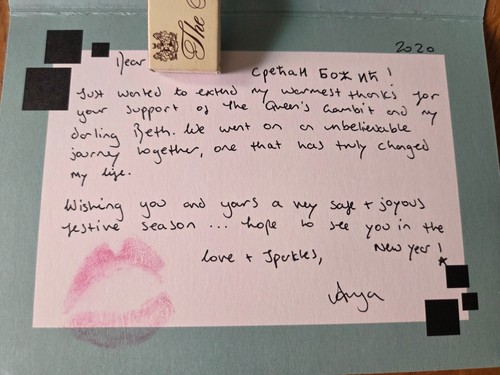 2020
Dear
The
Срећан Божић!
Just wanted to extend my warmest thanks for
your support of The Queen's Gambit and my
darling Beth. We went on an unbelievable
journey together, one that has truly changed
my life.
Wishing you and yours a very safe + joyous
festive season... hope to see you in the
New Year!
love + Sparkles,
Anya